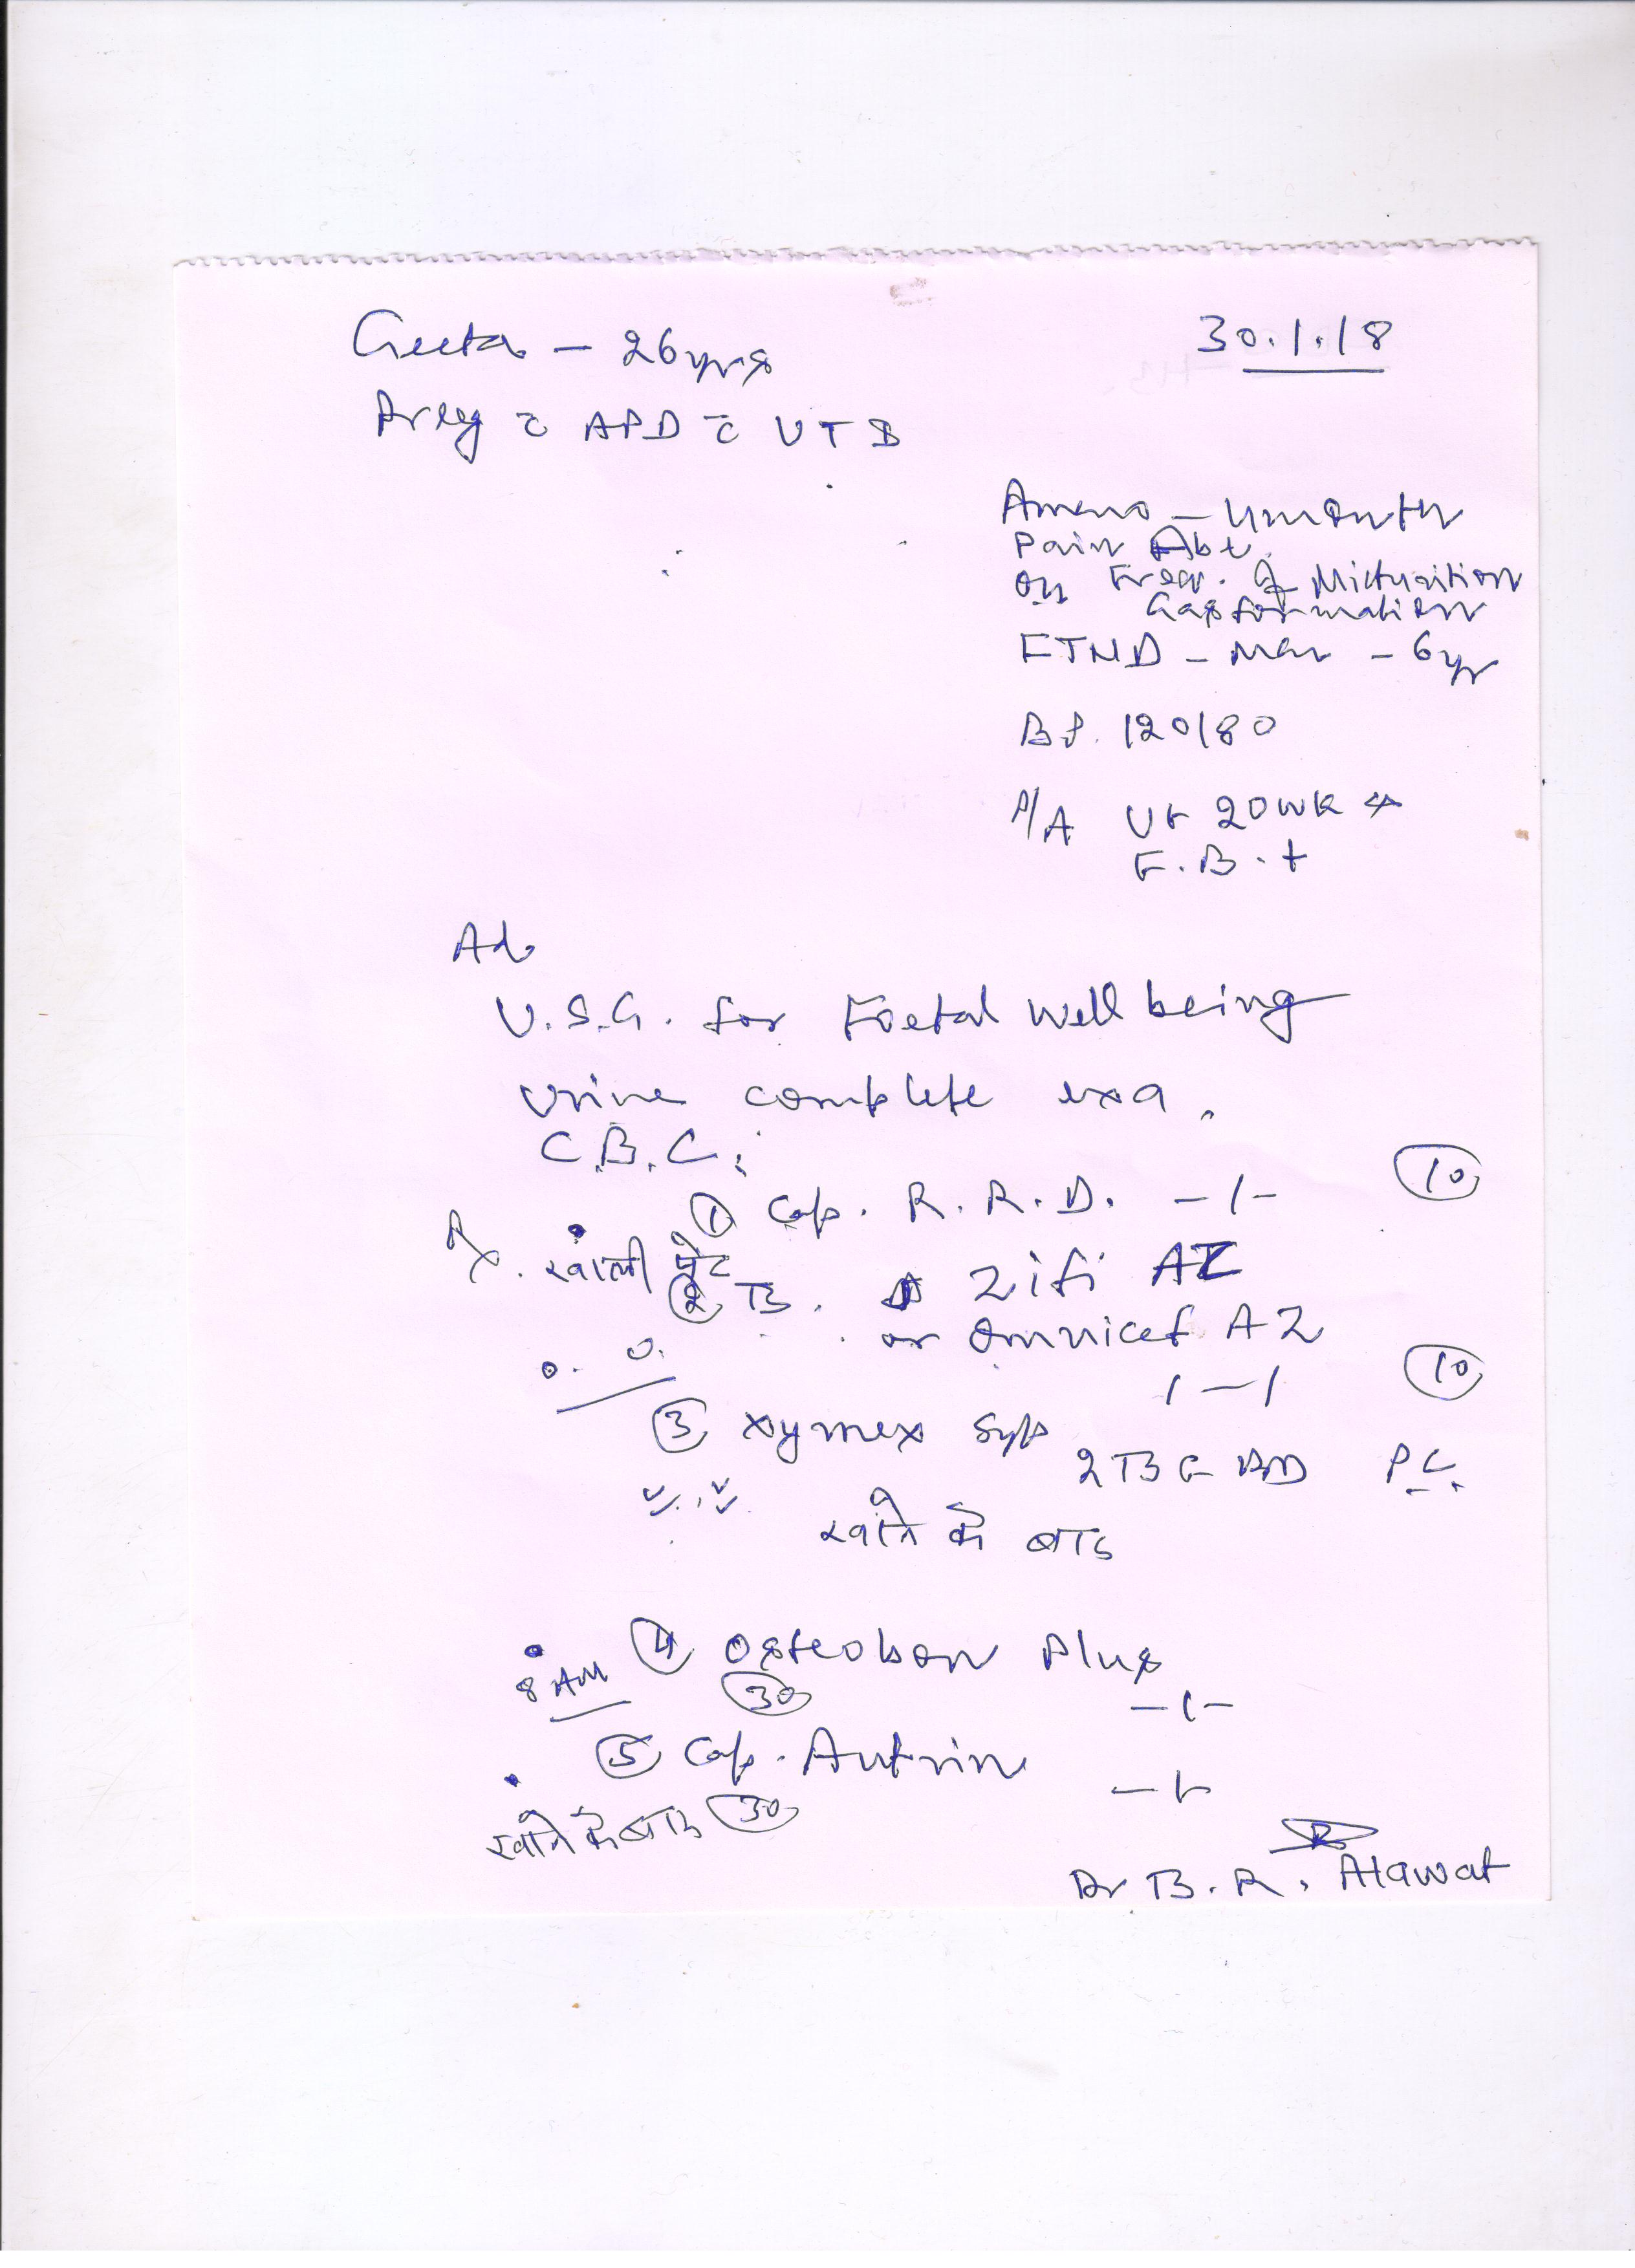 Geeta - 26yrs
30.1.18
Preg c̄ APD c̄ UTI
Ameno - 4month
Pain Abt.
on Freq. of Micturition
Gas formation
FTND - - 6yr
B.P. 120/80
P/A Ut 20wk
F.B.+
Ad
U.S.G. for Foetal Well being
Urine complete exa.
C.B.C.
① Cap. R.R.D. -1- ⑩
Rx. खाली पेट
② TB. Zifi AZ
or Omnicef AZ
1-1 ⑩
③ Xymex Syp
2 TBC BD P.C.
खाने के बाद
④ Osteobon Plus
8 AM
㉚ -1-
⑤ Cap. Autrin
-1-
खाने के बाद ㉚
Dr B.R. Atawat